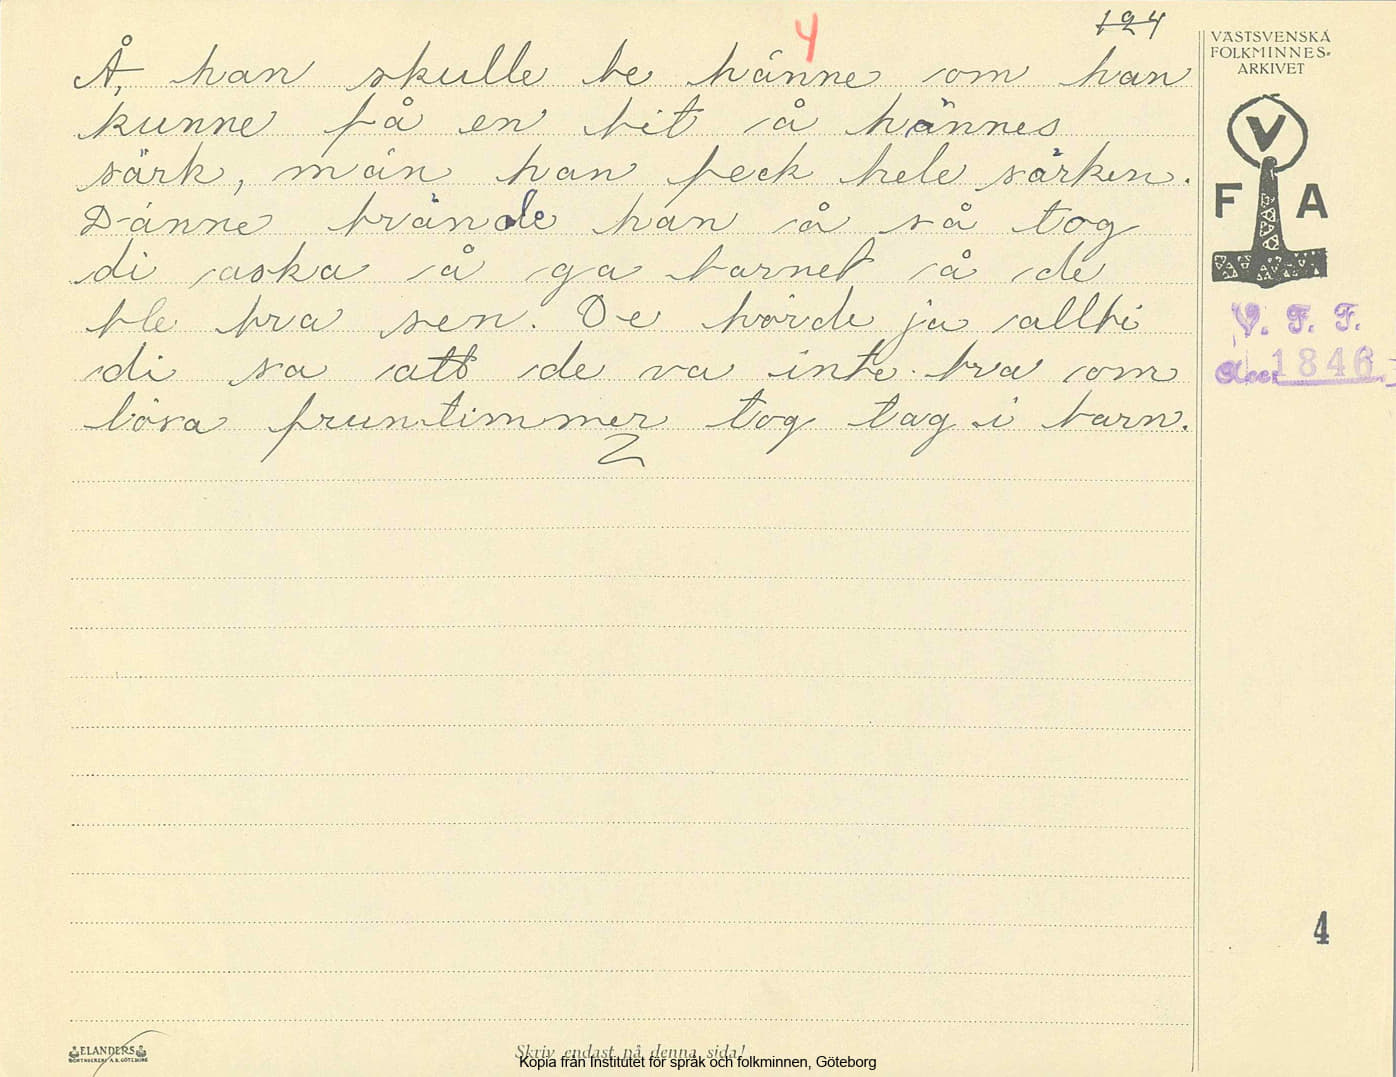 4
124
VÄSTSVENSKA
FOLKMINNES-
ARKIVET
Å, han skulle be hänne om han
kunne få en bit å hännes
särk, män han feck hele särken.
Dänne brände han å så tog
di aska å ga barnet å de
ble bra sen. De hörde ja allti
di sa att de va inte bra om
lösa fruntimmer tog tag i barn.
V
F A
V. F. F.
Acc. 1846
4
ELANDERS
BOKTRYCKERI A.B. GÖTEBORG
Skriv endast på denna sida!
Kopia från Institutet för språk och folkminnen, Göteborg